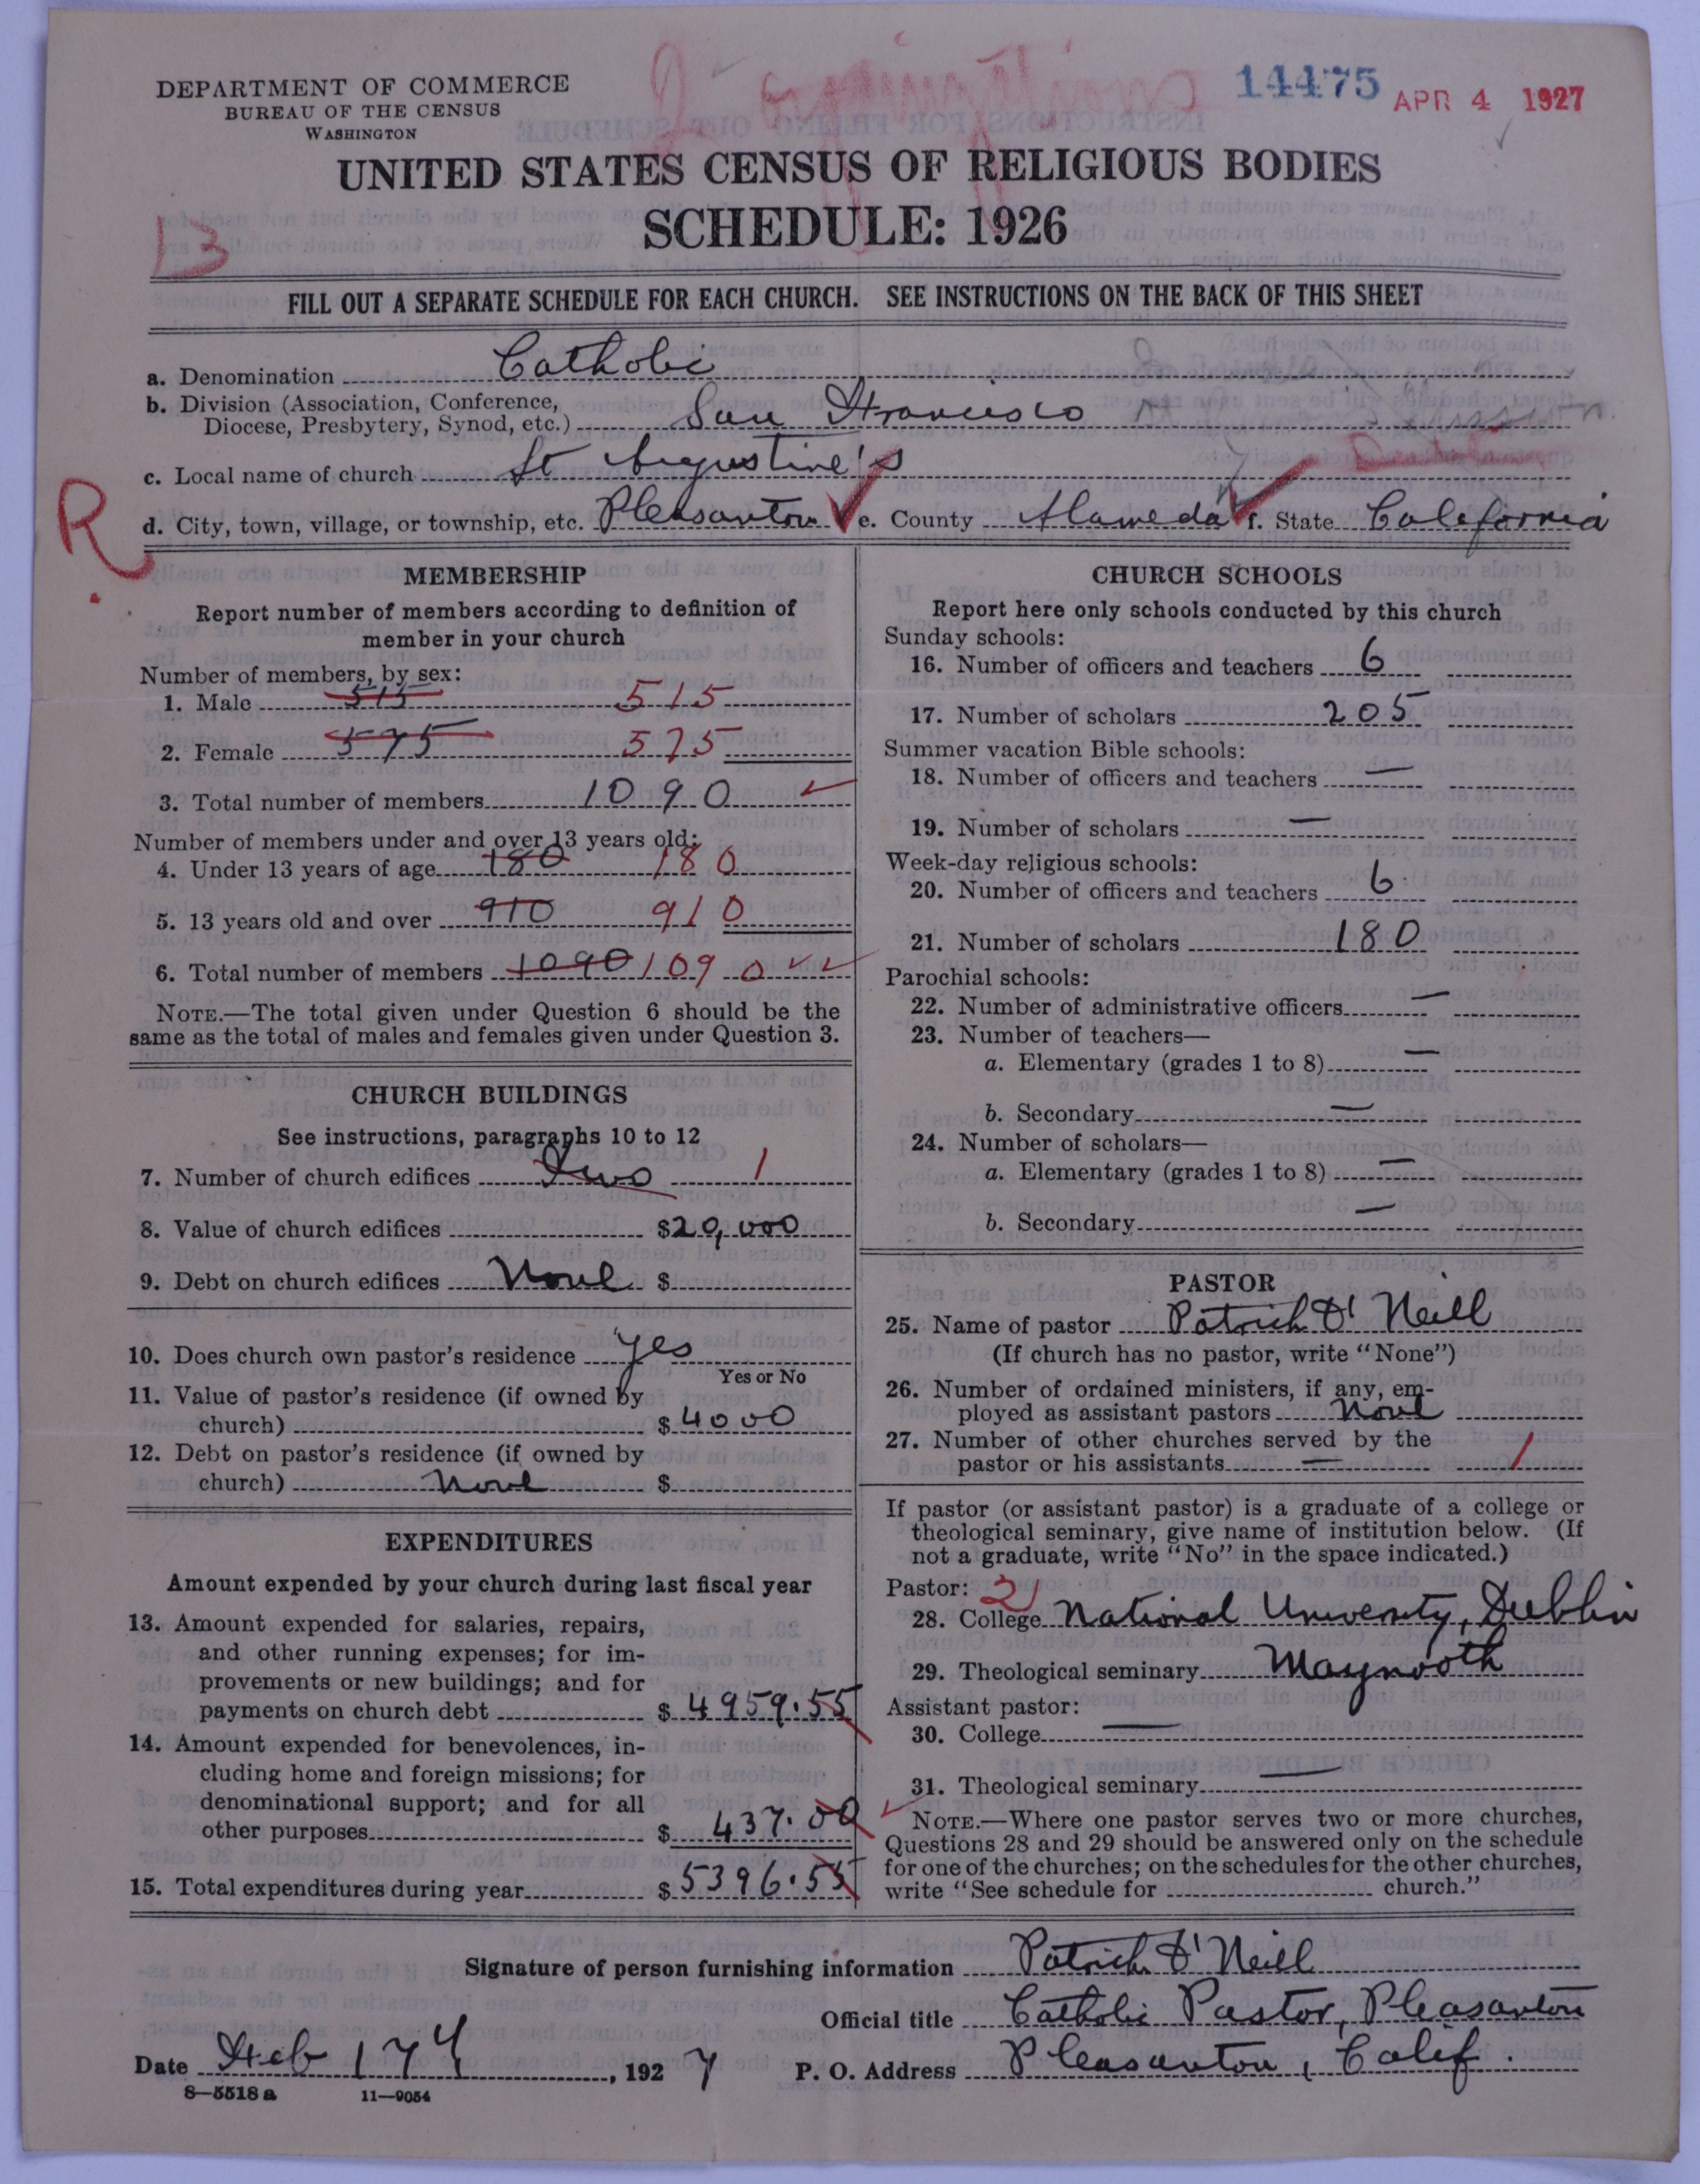 14475 APR 4 1927
DEPARTMENT OF COMMERCE
BUREAU OF THE CENSUS
WASHINGTON
UNITED STATES CENSUS OF RELIGIOUS BODIES
SCHEDULE: 1926
13
FILL OUT A SEPARATE SCHEDULE FOR EACH CHURCH. SEE INSTRUCTIONS ON THE BACK OF THIS SHEET
a. Denomination Catholic
b. Division (Association, Conference,
Diocese, Presbytery, Synod, etc.) San Francisco
c. Local name of church St Augustine's
R
d. City, town, village, or township, etc. Pleasanton e. County Alameda f. State California
MEMBERSHIP
Report number of members according to definition of
member in your church
Number of members, by sex:
1. Male 515 515
2. Female 575 575
3. Total number of members 1090
Number of members under and over 13 years old:
4. Under 13 years of age 180 180
5. 13 years old and over 910 910
6. Total number of members 1090 1090
NOTE.—The total given under Question 6 should be the
same as the total of males and females given under Question 3.
CHURCH BUILDINGS
See instructions, paragraphs 10 to 12
7. Number of church edifices Two 1
8. Value of church edifices $20,000
9. Debt on church edifices None $
10. Does church own pastor's residence yes
Yes or No
11. Value of pastor's residence (if owned by
church) $ 4000
12. Debt on pastor's residence (if owned by
church) None $
EXPENDITURES
Amount expended by your church during last fiscal year
13. Amount expended for salaries, repairs,
and other running expenses; for im-
provements or new buildings; and for
payments on church debt $ 4959.55
14. Amount expended for benevolences, in-
cluding home and foreign missions; for
denominational support; and for all
other purposes $ 437.00
15. Total expenditures during year $ 5396.55
CHURCH SCHOOLS
Report here only schools conducted by this church
Sunday schools:
16. Number of officers and teachers 6
17. Number of scholars 205
Summer vacation Bible schools:
18. Number of officers and teachers —
19. Number of scholars —
Week-day religious schools:
20. Number of officers and teachers 6
21. Number of scholars 180
Parochial schools:
22. Number of administrative officers —
23. Number of teachers—
a. Elementary (grades 1 to 8) —
b. Secondary —
24. Number of scholars—
a. Elementary (grades 1 to 8) —
b. Secondary —
PASTOR
25. Name of pastor Patrick O'Neill
(If church has no pastor, write "None")
26. Number of ordained ministers, if any, em-
ployed as assistant pastors None
27. Number of other churches served by the
pastor or his assistants — 1
If pastor (or assistant pastor) is a graduate of a college or
theological seminary, give name of institution below. (If
not a graduate, write "No" in the space indicated.)
Pastor: 2
28. College National University, Dublin
29. Theological seminary Maynooth
Assistant pastor:
30. College —
31. Theological seminary —
NOTE.—Where one pastor serves two or more churches,
Questions 28 and 29 should be answered only on the schedule
for one of the churches; on the schedules for the other churches,
write "See schedule for church."
Signature of person furnishing information Patrick O'Neill
Official title Catholic Pastor, Pleasanton
Date Feb 17th, 1927 P. O. Address Pleasanton, Calif.
8—5518 a 11—9054